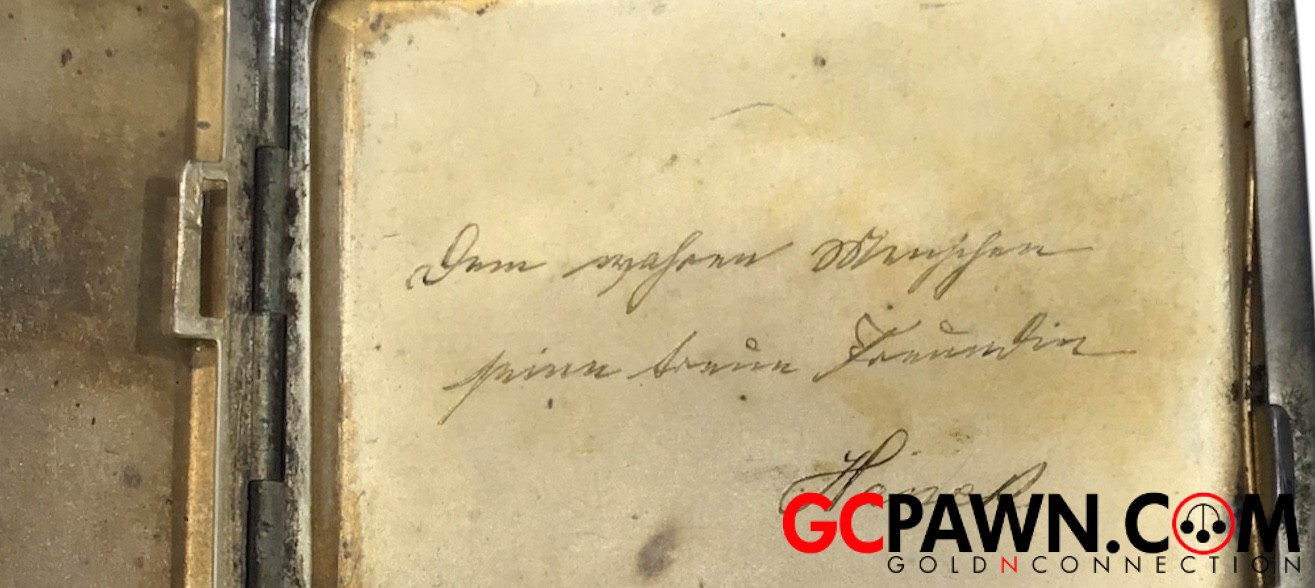 Dem wahren Menschen
seine treue Freundin
GCPAWN.COM
GOLDNCONNECTION